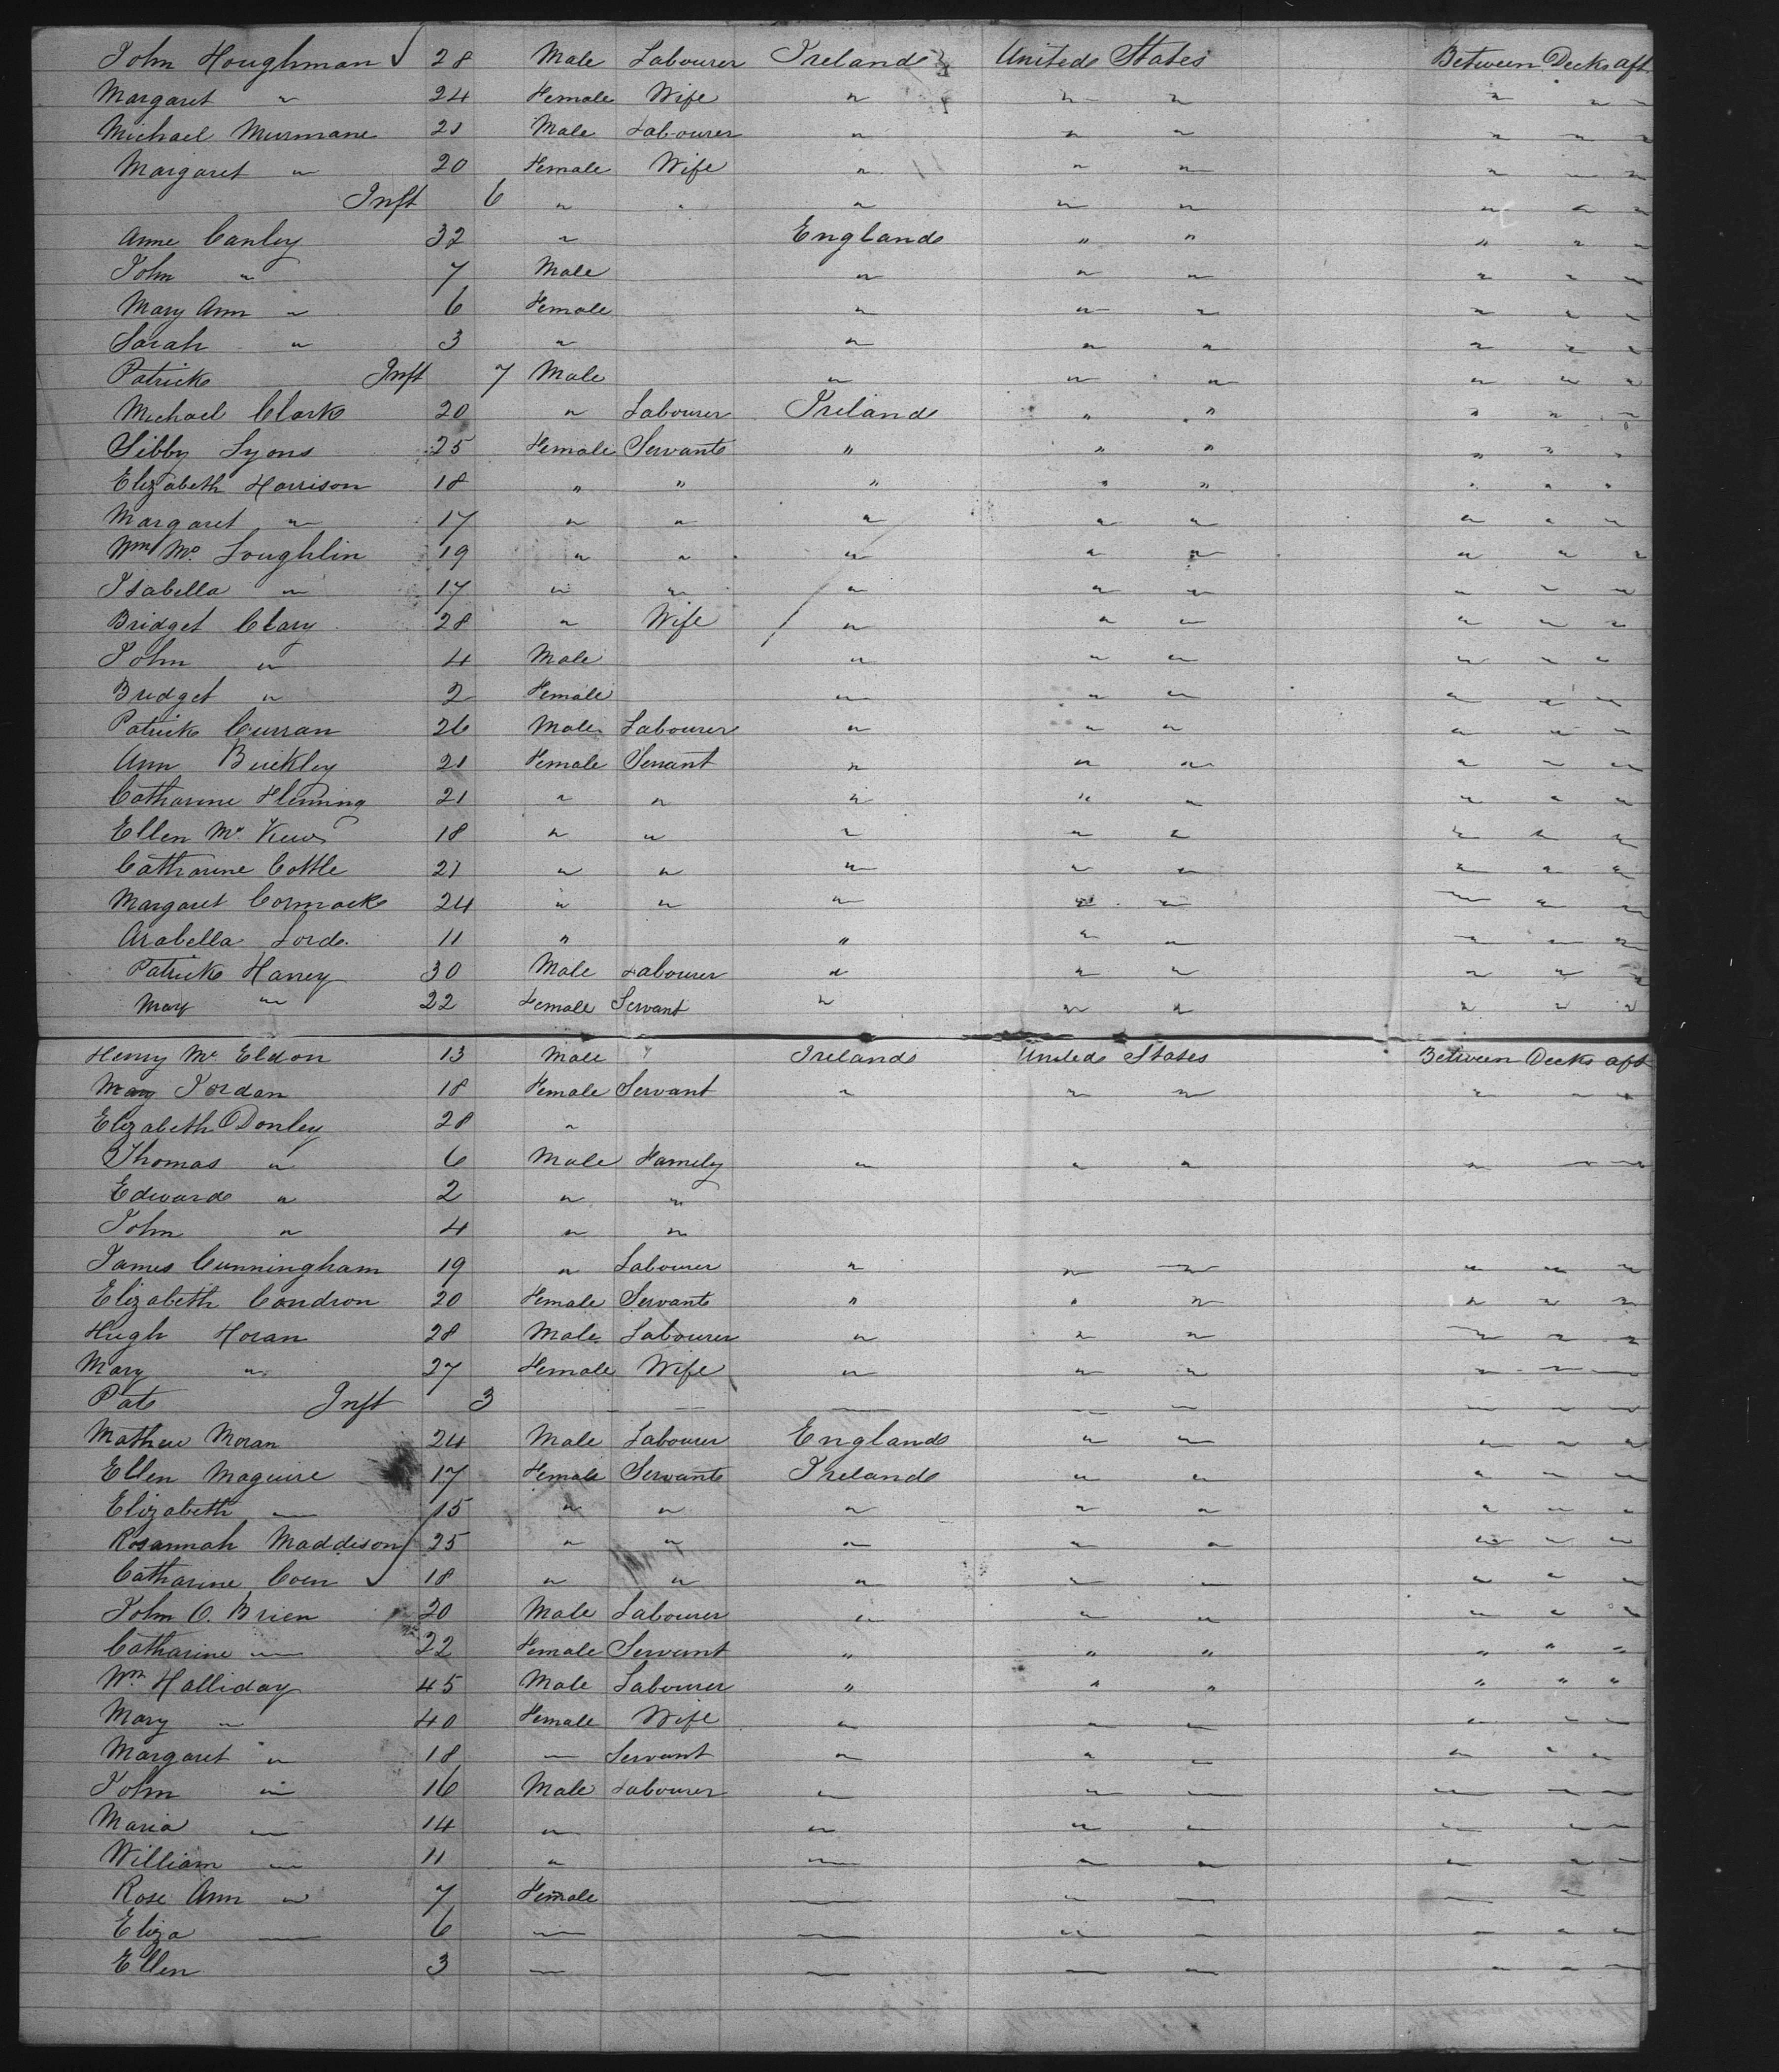 John Houghman 28 Male Labourer Ireland United States Between Decks aft
Margaret " 24 Female Wife " " " " " "
Michael Murmane 21 Male Labourer " " " " " "
Margaret " 20 Female Wife " " " " " "
Inft 6 " " " " " " " "
Anne Canley 32 " England " " " " "
John " 7 Male " " " " " "
Mary Ann " 6 Female " " " " " "
Sarah " 3 " " " " " " "
Patrick Inft 7 Male " " " " " "
Michael Clark 20 " Labourer Ireland " " " " "
Sibby Lyons 25 Female Servant " " " " " "
Elizabeth Harrison 18 " " " " " " " "
Margaret " 17 " " " " " " " "
Wm Mc Loughlin 19 " " " " " " " "
Isabella " 17 " " " " " " " "
Bridget Clary 28 " Wife " " " " " "
John " 4 Male " " " " " "
Bridget " 2 Female " " " " " "
Patrick Curran 26 Male Labourer " " " " " "
Ann Buckley 21 Female Servant " " " " " "
Catharine Fleming 21 " " " " " " " "
Ellen Mc 18 " " " " " " " "
Catharine Cottle 21 " " " " " " " "
Margaret Cormack 24 " " " " " " " "
Arabella Lord 11 " " " " " " "
Patrick Harvey 30 Male Labourer " " " " " "
Mary " 22 Female Servant " " " " " "
Henry Mc Eldon 13 Male Ireland United States Between Decks aft
Mary Jordan 18 Female Servant " " " " " "
Elizabeth ODonley 28 "
Thomas " 6 Male Family " " " " " "
Edward " 2 " "
John " 4 " "
James Cunningham 19 " Labourer " " " " " "
Elizabeth Condron 20 Female Servant " " " " " "
Hugh Horan 28 Male Labourer " " " " " "
Mary " 27 Female Wife " " " " " "
Pat Inft 3 " " " " " " " "
Mathew Moran 24 Male Labourer England " " " " "
Ellen Maguire 17 Female Servant Ireland " " " " "
Elizabeth " 15 " " " " " " " "
Rosannah Maddison 25 " " " " " " " "
Catharine Coen 18 " " " " " " " "
John O. Brien 20 Male Labourer " " " " " "
Catharine " 22 Female Servant " " " " " "
Wm Halliday 45 Male Labourer " " " " " "
Mary " 40 Female Wife " " " " " "
Margaret " 18 " Servant " " " " " "
John " 16 Male Labourer " " " " " "
Maria " 14 " " " " " " "
William " 11 " " " " " " "
Rose Ann " 7 Female " " " " "
Eliza " 6 " " " " " " "
Ellen 3 " " " " " " "